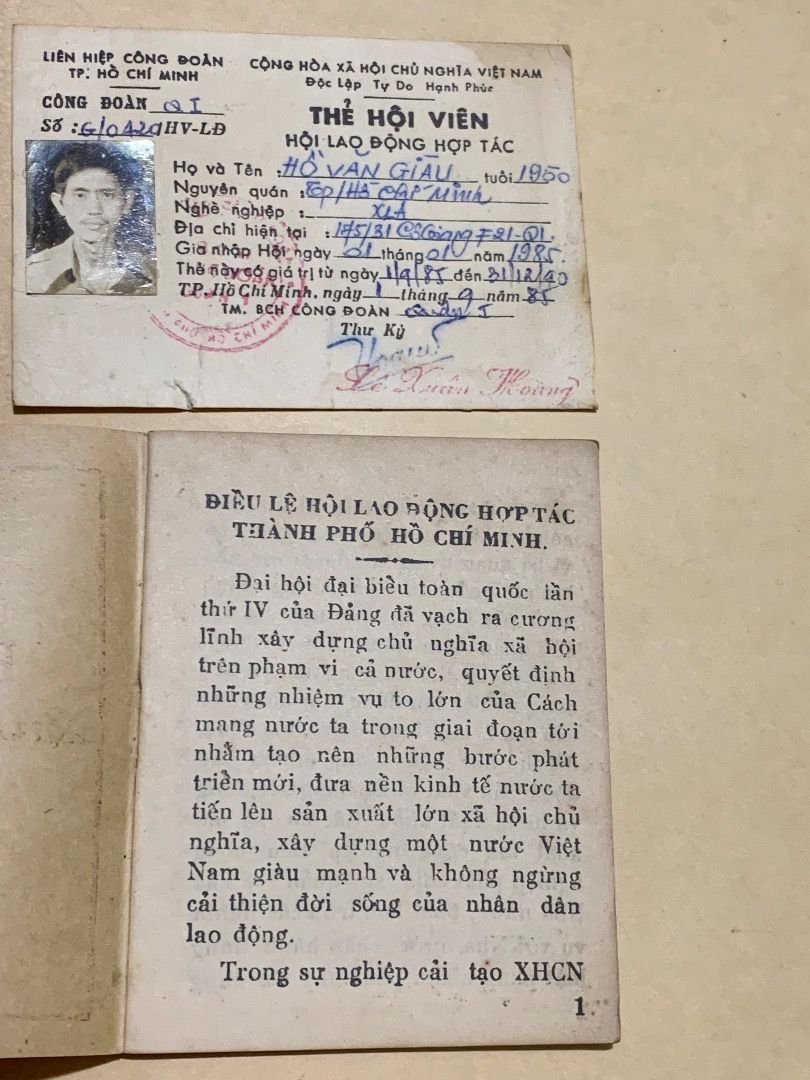 LIÊN HIỆP CÔNG ĐOÀN
TP. HỒ CHÍ MINH
CÔNG ĐOÀN QI
Số : G/0420/HV-LĐ
CỘNG HÒA XÃ HỘI CHỦ NGHĨA VIỆT NAM
Độc Lập Tự Do Hạnh Phúc
THẺ HỘI VIÊN
HỘI LAO ĐỘNG HỢP TÁC
Họ và Tên : HỒ VĂN GIÀU tuổi 1950
Nguyên quán : Tp/Hồ CHÍ MINH
Nghề nghiệp : XLÁ
Địa chỉ hiện tại : 175/31 Cô Giang F21-Q1.
Gia nhập Hội ngày 01 tháng 01 năm 1985.
Thẻ này có giá trị từ ngày 1/9/85 đến 31/12/90
TP. Hồ Chí Minh, ngày 1 tháng 9 năm 85
TM. BCH CÔNG ĐOÀN Quận I
Thư Ký
Lê Xuân Hoàng
ĐIỀU LỆ HỘI LAO ĐỘNG HỢP TÁC
THÀNH PHỐ HỒ CHÍ MINH.
Đại hội đại biểu toàn quốc lần
thứ IV của Đảng đã vạch ra cương
lĩnh xây dựng chủ nghĩa xã hội
trên phạm vi cả nước, quyết định
những nhiệm vụ to lớn của Cách
mang nước ta trong giai đoạn tới
nhằm tạo nên những bước phát
triển mới, đưa nền kinh tế nước ta
tiến lên sản xuất lớn xã hội chủ
nghĩa, xây dựng một nước Việt
Nam giàu mạnh và không ngừng
cải thiện đời sống của nhân dân
lao động.
Trong sự nghiệp cải tạo XHCN
1